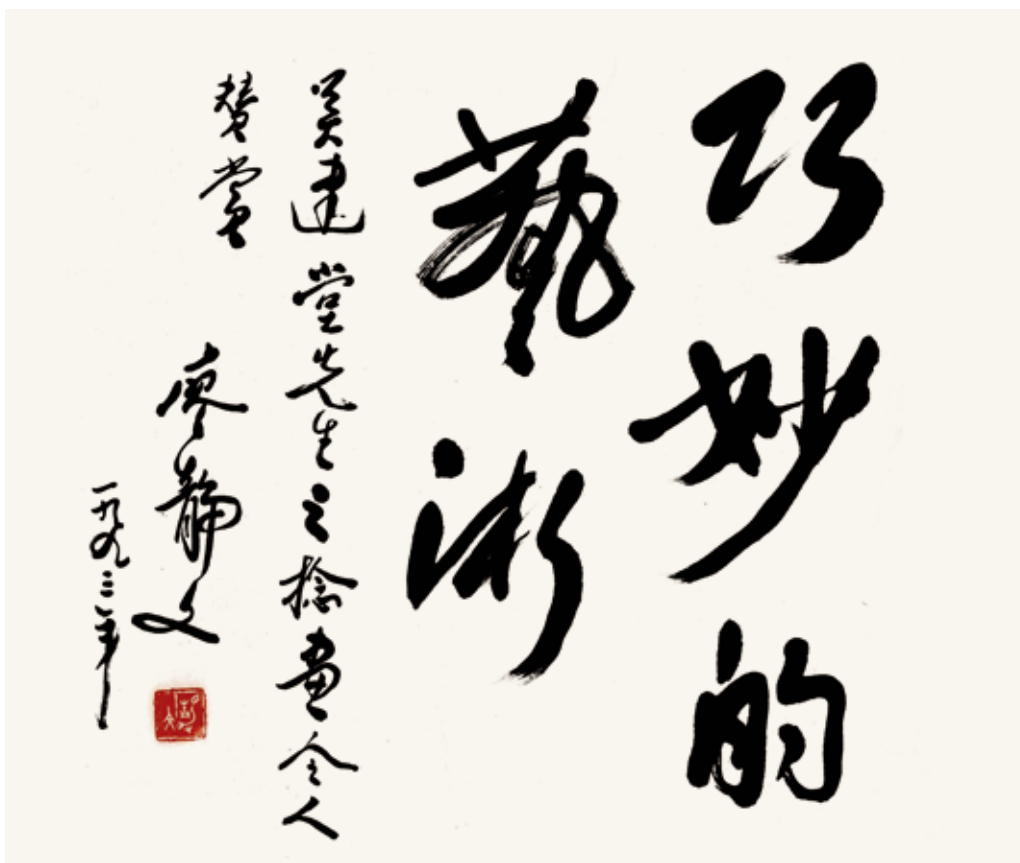 巧妙的
藝術
吴建堂先生之捻畫令人
賛賞
廖靜文
一九九三年